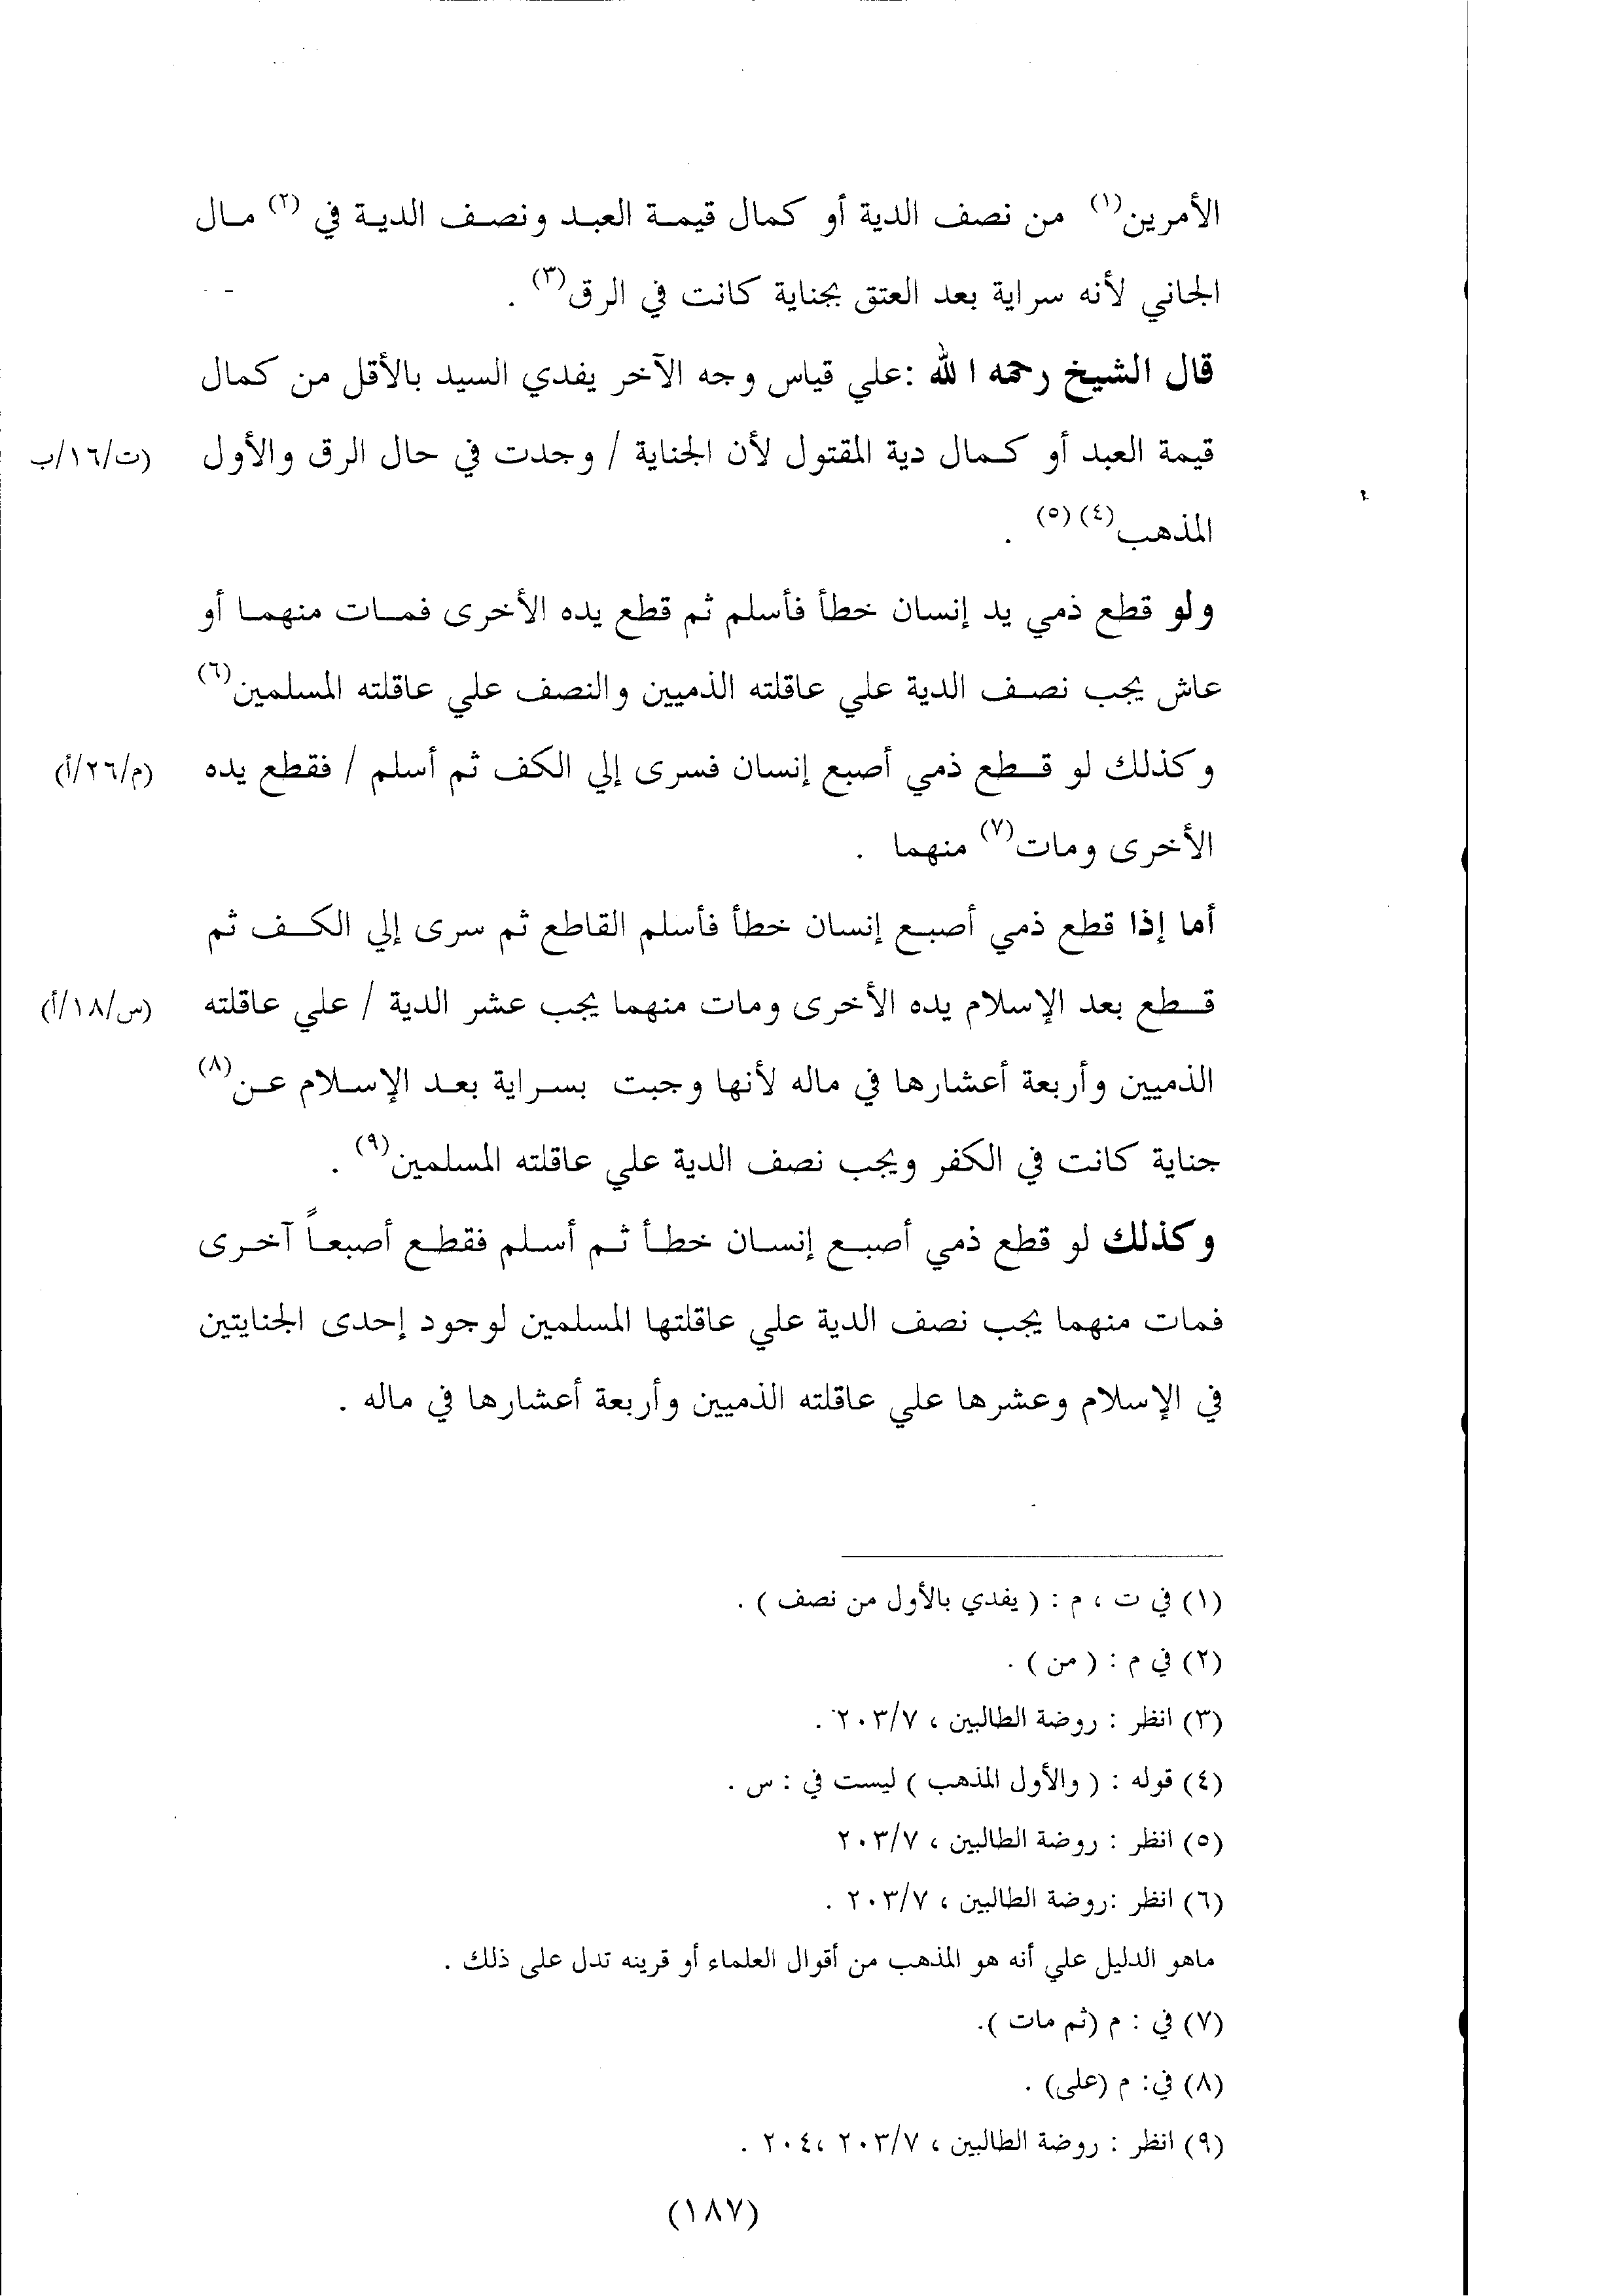 الأمرين(١) من نصف الدية أو كمال قيمة العبد ونصف الدية في (٢) مال
الجاني لأنه سراية بعد العتق بجناية كانت في الرق(٣) .
قال الشيخ رحمه الله :علي قياس وجه الآخر يفدي السيد بالأقل من كمال
قيمة العبد أو كمال دية المقتول لأن الجناية / وجدت في حال الرق والأول (ت/١٦/ب
المذهب(٤)(٥) .
ولو قطع ذمي يد إنسان خطأ فأسلم ثم قطع يده الأخرى فمات منهما أو
عاش يجب نصف الدية علي عاقلته الذميين والنصف علي عاقلته المسلمين(٦)
وكذلك لو قطع ذمي أصبع إنسان فسرى إلي الكف ثم أسلم / فقطع يده (م/٢٦/أ)
الأخرى ومات(٧) منهما .
أما إذا قطع ذمي أصبع إنسان خطأ فأسلم القاطع ثم سرى إلي الكف ثم
قطع بعد الإسلام يده الأخرى ومات منهما يجب عشر الدية / علي عاقلته (س/١٨/أ)
الذميين وأربعة أعشارها في ماله لأنها وجبت بسراية بعد الإسلام عن(٨)
جناية كانت في الكفر ويجب نصف الدية علي عاقلته المسلمين(٩) .
وكذلك لو قطع ذمي أصبع إنسان خطأ ثم أسلم فقطع أصبعاً آخرى
فمات منهما يجب نصف الدية علي عاقلتها المسلمين لوجود إحدى الجنايتين
في الإسلام وعشرها علي عاقلته الذميين وأربعة أعشارها في ماله .
(١) في ت ، م : ( يفدي بالأول من نصف ) .
(٢) في م : ( من ) .
(٣) انظر : روضة الطالبين ، ٢٠٣/٧ .
(٤) قوله : ( والأول المذهب ) ليست في : س .
(٥) انظر : روضة الطالبين ، ٢٠٣/٧
(٦) انظر :روضة الطالبين ، ٢٠٣/٧ .
ماهو الدليل علي أنه هو المذهب من أقوال العلماء أو قرينه تدل على ذلك .
(٧) في : م (ثم مات ).
(٨) في: م (على) .
(٩) انظر : روضة الطالبين ، ٢٠٣/٧ ،٢٠٤ .
(١٨٧)